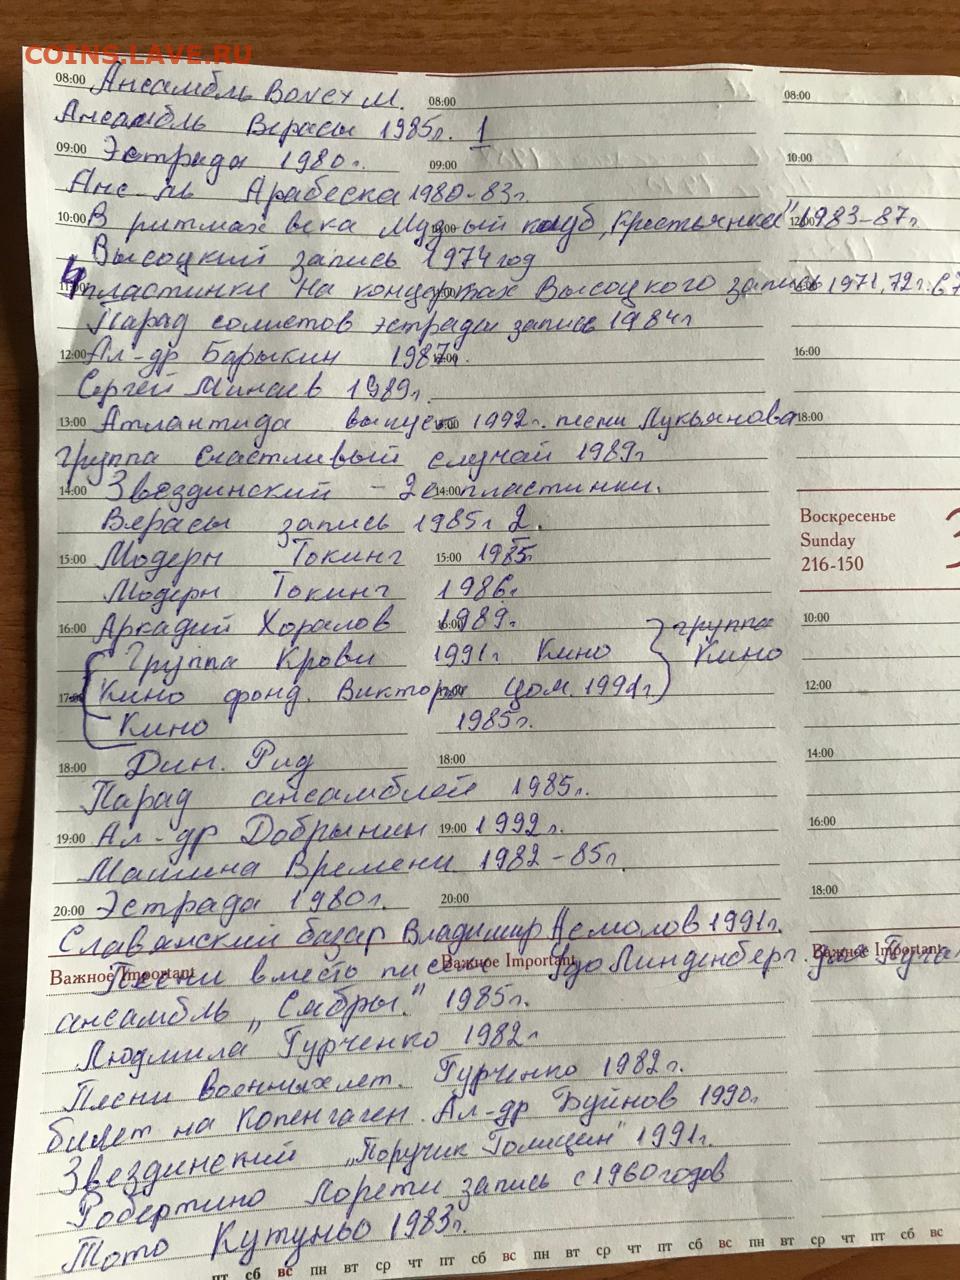 COINS.LAVE.RU
08:00 Ансамбль Boney M. 08:00 08:00
Ансамбль Верасы 1985г. 1
09:00 Эстрада 1980г. 09:00 10:00
Анс-ль Арабеска 1980-83г.
10:00 В ритмах века клуб „Крестьянка" 1983-87г
Высоцкий запись 1974 год
4 пластинки на концертах Высоцкого запись 1971, 72г. 67
Парад солистов эстрады запись 1984г
12:00 Ал-др Барыкин 1987г. 16:00
Сергей Минаев 1989г.
13:00 Атлантида выпуск 1992г. песни Лукьянова 18:00
группа Счастливый случай 1989г
14:00 Звездинский - 2е пластинки. 14:00
Верасы запись 1985г 2.
Воскресенье
Sunday
216-150
15:00 Модерн Токинг 15:00 1985
Модерн Токинг 1986г.
16:00 Аркадий Хоралов 16:00 1989г. 10:00
Группа Крови 1991г Кино группа
Кино фонд. Виктора Цоя 1991г. Кино
17:00 12:00
Кино 1985г.
18:00 Дин. Рид 18:00 14:00
Парад ансамблей 1985г.
19:00 Ал-др Добрынин 19:00 1992г. 16:00
Машина Времени 1982-85г
20:00 Эстрада 1980г. 20:00 18:00
Славянский базар Владимир 1991г.
Важное Important Важное Important Важное Important
Песни вместо писем Удо Линденберг.
ансамбль „Сябры." 1985г.
Людмила Гурченко 1982г
Песни военных лет. Гурченко 1982г.
билет на Копенгаген. Ал-др Буйнов 1990г.
Звездинский „Поручик Голицин" 1991г.
Робертино Лорети запись с 1960 годов
Тото Кутуньо 1983г.
пт сб вс пн вт ср чт пт сб вс пн вт ср чт пт сб вс пн вт ср чт пт сб вс